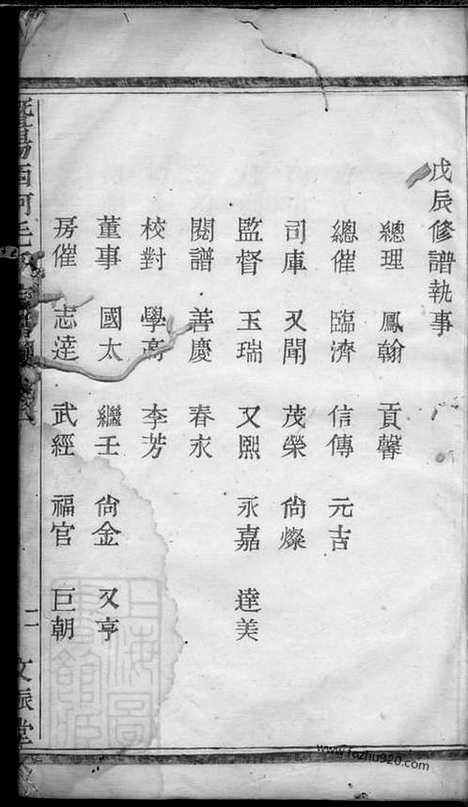 戊辰修譜執事
總理 鳳翰 貢馨
總催 臨濟 信傳 元吉
司庫 又聞 茂榮 尙燦
監督 玉瑞 又熙 永嘉 達美
閱譜 善慶 春永
校對 學高 李芳
董事 國太 繼壬 尙金 又亨
房催 志達 武經 福官 巨朝
暨陽西河毛氏宗譜
二
文振堂
www.fozhu920.com